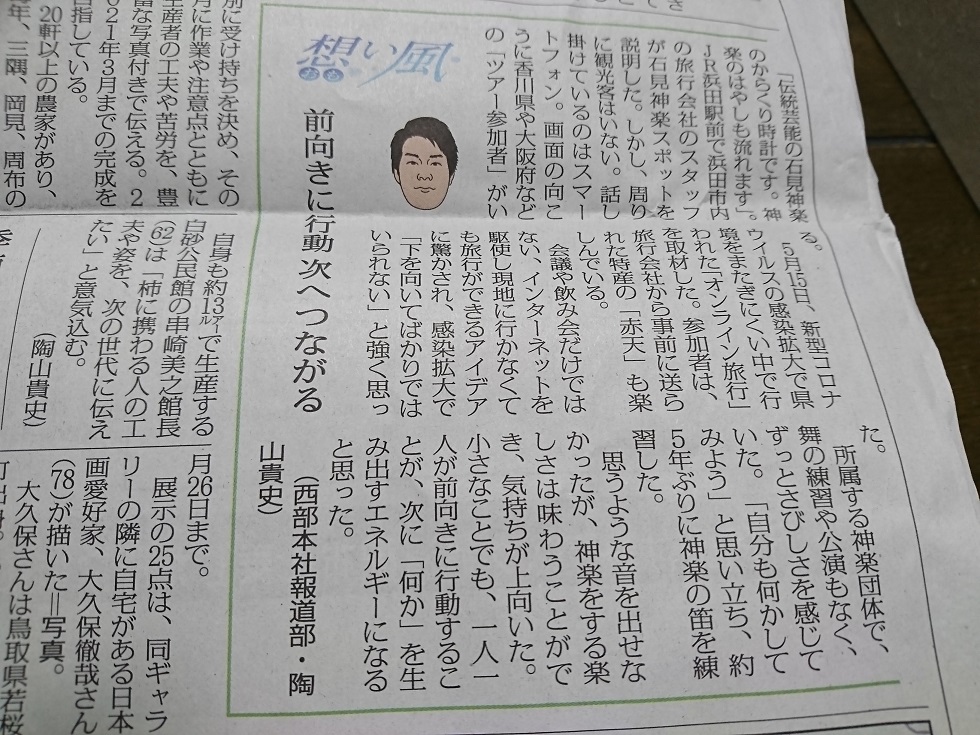 想い風
おも かぜ
前向きに行動 次へつながる
「伝統芸能の石見神楽
のからくり時計です。神
楽のはやしも流れます」。
ＪＲ浜田駅前で浜田市内
の旅行会社のスタッフ
が石見神楽スポットを
説明した。しかし、周り
に観光客はいない。話し
掛けているのはスマー
トフォン。画面の向こ
うに香川県や大阪府など
の「ツアー参加者」がい
る。
５月15日、新型コロナ
ウイルスの感染拡大で県
境をまたぎにくい中で行
われた「オンライン旅行」
を取材した。参加者は、
旅行会社から事前に送ら
れた特産の「赤天」も楽
しんでいる。
会議や飲み会だけでは
ない、インターネットを
駆使し現地に行かなくて
も旅行ができるアイデア
に驚かされ、感染拡大で
「下を向いてばかりでは
いられない」と強く思っ
た。
所属する神楽団体で、
舞の練習や公演もなく、
ずっとさびしさを感じて
いた。「自分も何かして
みよう」と思い立ち、約
５年ぶりに神楽の笛を練
習した。
思うような音を出せな
かったが、神楽をする楽
しさは味わうことがで
き、気持ちが上向いた。
小さなことでも、一人一
人が前向きに行動するこ
とが、次に「何か」を生
み出すエネルギーになる
と思った。
（西部本社報道部・陶
山貴史）
別に受け持ちを決め、その
月に作業や注意点とともに
生産者の工夫や苦労を、豊
富な写真付きで伝える。２
021年３月までの完成を
目指している。
20軒以上の農家があり、
年、三隅、岡見、周布の
自身も約13㌃で生産する
白砂公民館の串崎美之館長
（62）は「柿に携わる人の工
夫や姿を、次の世代に伝え
たい」と意気込む。
（陶山貴史）
月26日まで。
展示の25点は、同ギャラ
リーの隣に自宅がある日本
画愛好家、大久保徹哉さん
（78）が描いた＝写真。
大久保さんは鳥取県若桜